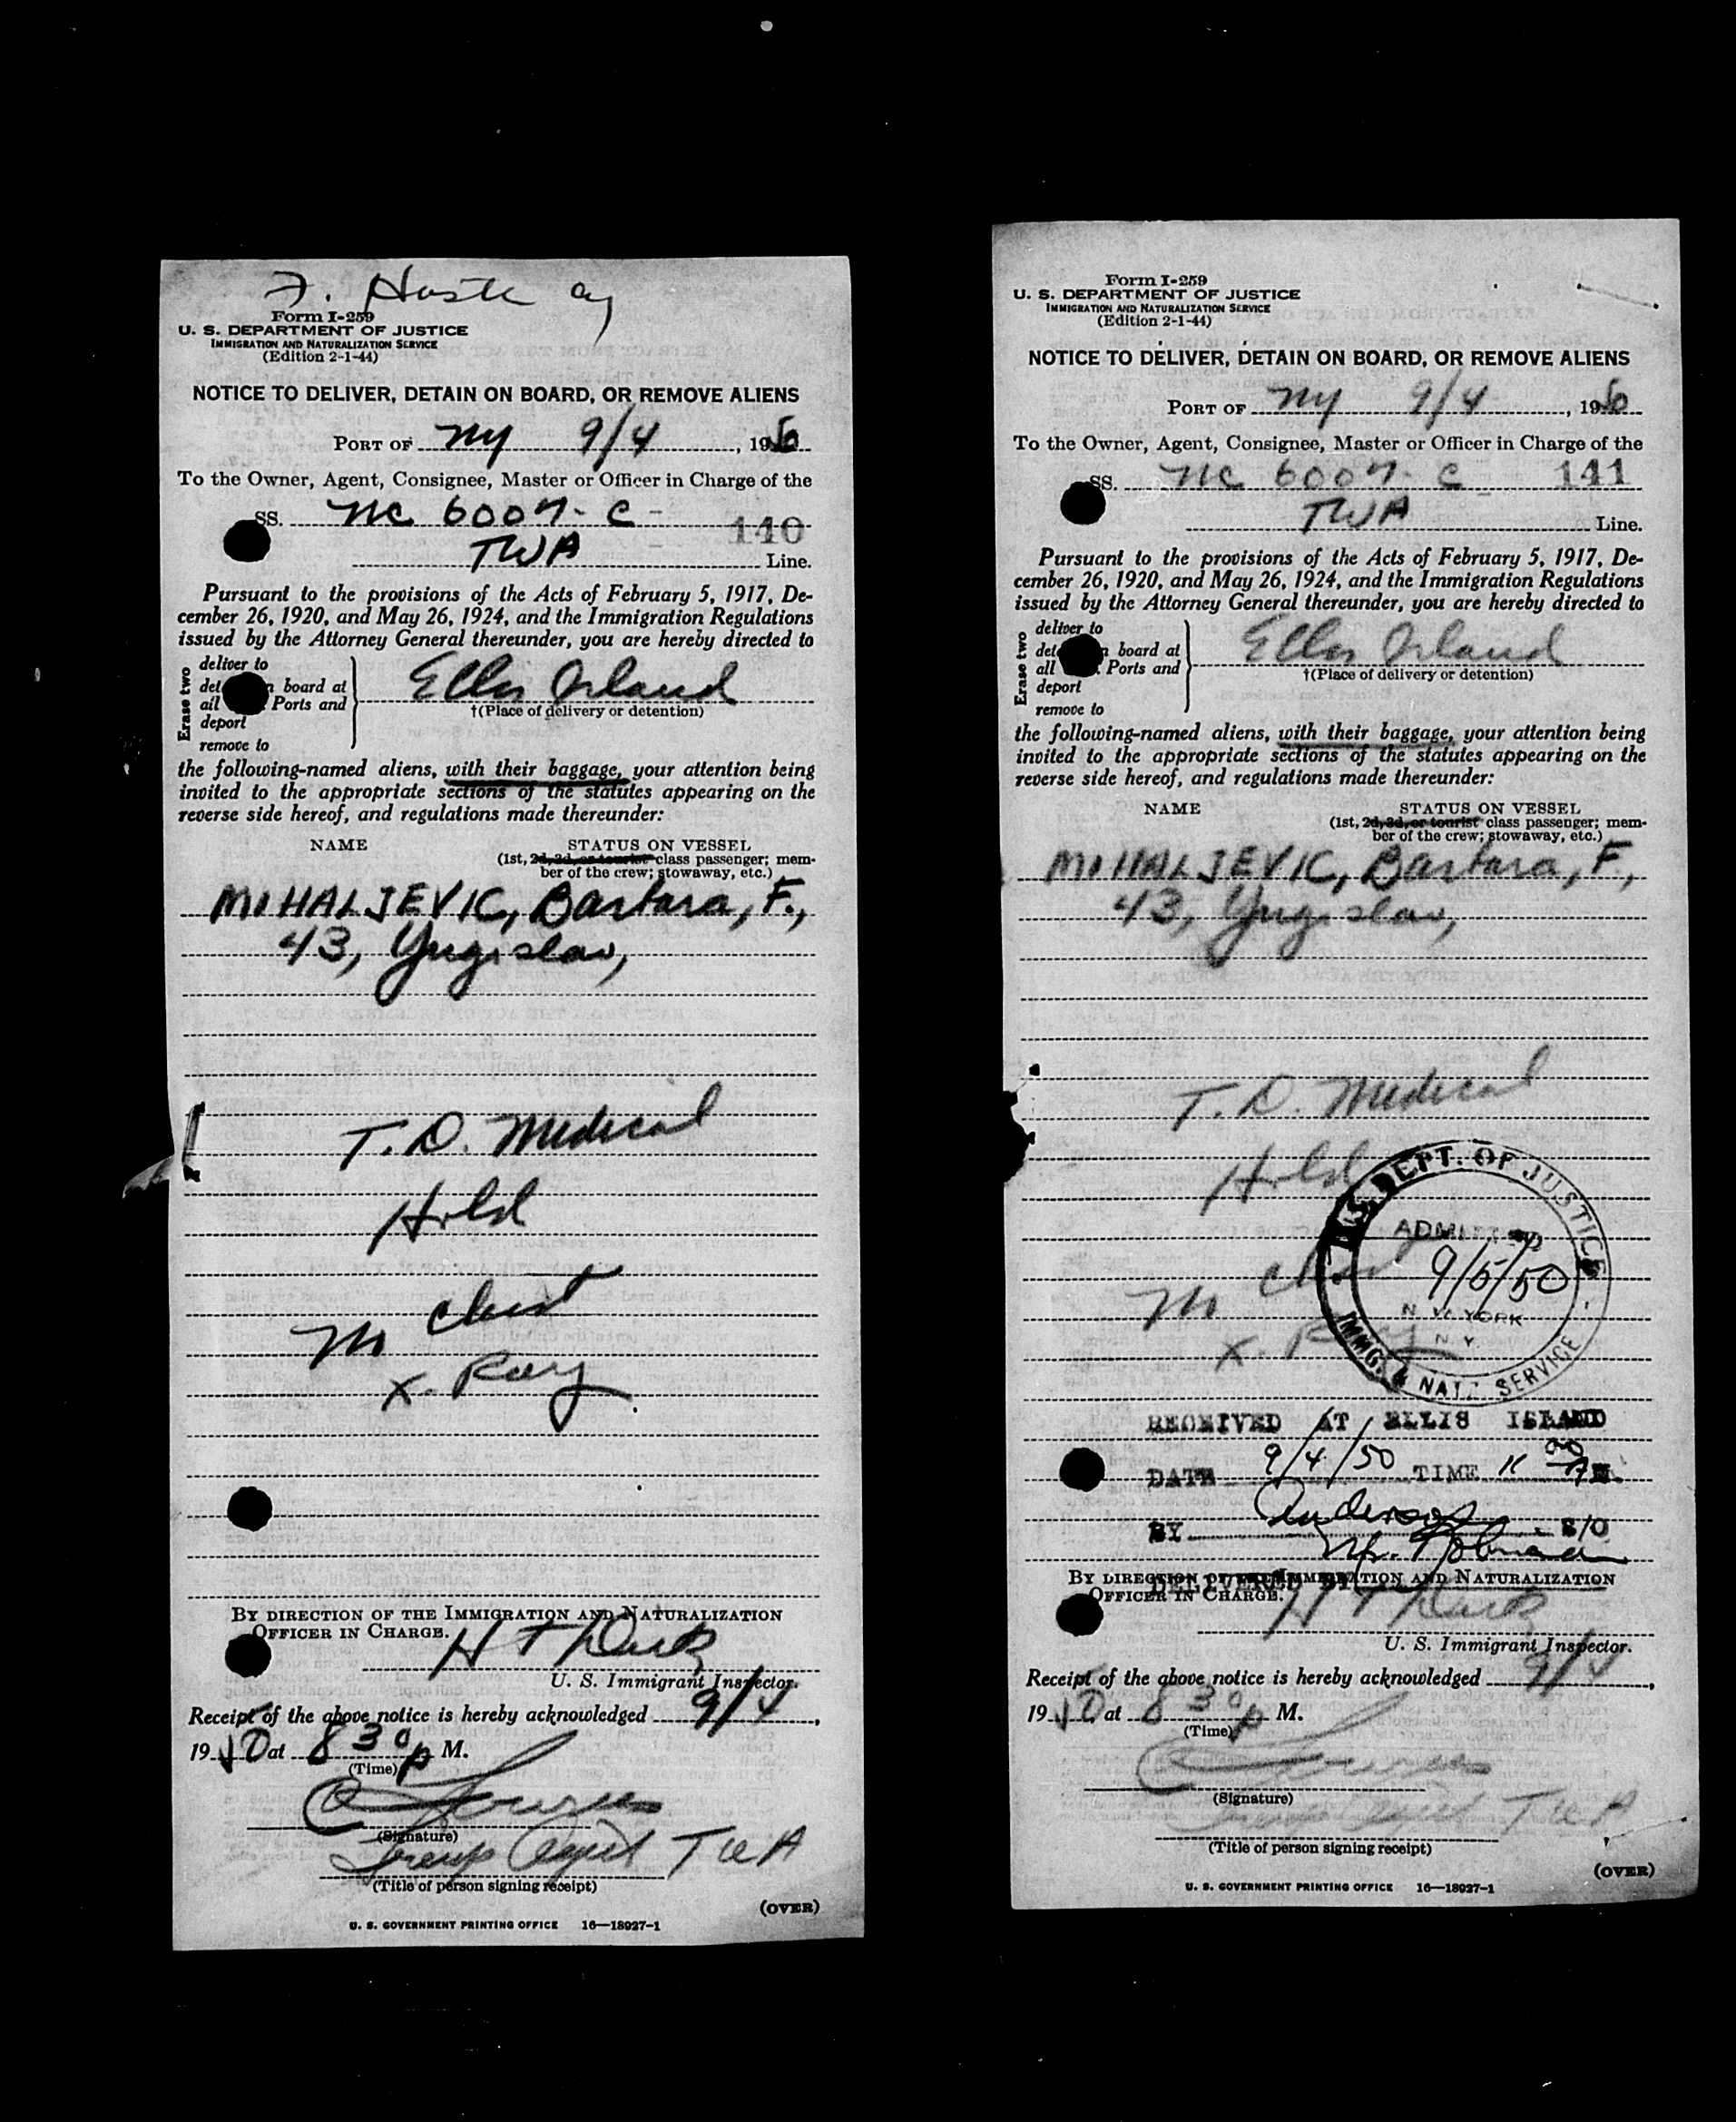 F.
Form I-259
U. S. DEPARTMENT OF JUSTICE
IMMIGRATION AND NATURALIZATION SERVICE
(Edition 2-1-44)
NOTICE TO DELIVER, DETAIN ON BOARD, OR REMOVE ALIENS
PORT OF NY 9/4, 1950
To the Owner, Agent, Consignee, Master or Officer in Charge of the
SS. NC 6007-C 140
TWA Line.
Pursuant to the provisions of the Acts of February 5, 1917, De-
cember 26, 1920, and May 26, 1924, and the Immigration Regulations
issued by the Attorney General thereunder, you are hereby directed to
Erase two
deliver to
board at
all Ports and
deport
remove to
Ellis Island
†(Place of delivery or detention)
the following-named aliens, with their baggage, your attention being
invited to the appropriate sections of the statutes appearing on the
reverse side hereof, and regulations made thereunder:
NAME STATUS ON VESSEL
(1st, 2d, 3d, or tourist class passenger; mem-
ber of the crew; stowaway, etc.)
MIHALJEVIC, Barbara, F.,
43, Yugoslav,
T.D. Medical
Hold
M chest
X-Ray
BY DIRECTION OF THE IMMIGRATION AND NATURALIZATION
OFFICER IN CHARGE.
H T
U. S. Immigrant Inspector.
Receipt of the above notice is hereby acknowledged 9/4,
1950 at 8 30 p M.
(Time)
(Signature)
Agent TWA
(Title of person signing receipt)
(OVER)
U. S. GOVERNMENT PRINTING OFFICE 16—18927-1
Form I-259
U. S. DEPARTMENT OF JUSTICE
IMMIGRATION AND NATURALIZATION SERVICE
(Edition 2-1-44)
NOTICE TO DELIVER, DETAIN ON BOARD, OR REMOVE ALIENS
PORT OF NY 9/4, 1950
To the Owner, Agent, Consignee, Master or Officer in Charge of the
SS. NC 6007-C 141
TWA Line.
Pursuant to the provisions of the Acts of February 5, 1917, De-
cember 26, 1920, and May 26, 1924, and the Immigration Regulations
issued by the Attorney General thereunder, you are hereby directed to
Erase two
deliver to
board at
all Ports and
deport
remove to
Ellis Island
†(Place of delivery or detention)
the following-named aliens, with their baggage, your attention being
invited to the appropriate sections of the statutes appearing on the
reverse side hereof, and regulations made thereunder:
NAME STATUS ON VESSEL
(1st, 2d, 3d, or tourist class passenger; mem-
ber of the crew; stowaway, etc.)
MIHALJEVIC, Barbara, F.,
43, Yugoslav,
T.D. Medical
Hold
M chest
X-Ray
U.S. DEPT. OF JUSTICE
ADMITTED
9/5/50
NEW YORK
N.Y.
IMMG. & NATZ SERVICE
RECEIVED AT ELLIS ISLAND
DATE 9/4/50 TIME 11 00 M.
BY Anderson S/O
DELIVERED BY
BY DIRECTION OF THE IMMIGRATION AND NATURALIZATION
OFFICER IN CHARGE.
H T
U. S. Immigrant Inspector.
Receipt of the above notice is hereby acknowledged 9/4,
1950 at 8 30 p M.
(Time)
(Signature)
Agent TWA
(Title of person signing receipt)
(OVER)
U. S. GOVERNMENT PRINTING OFFICE 16—18927-1